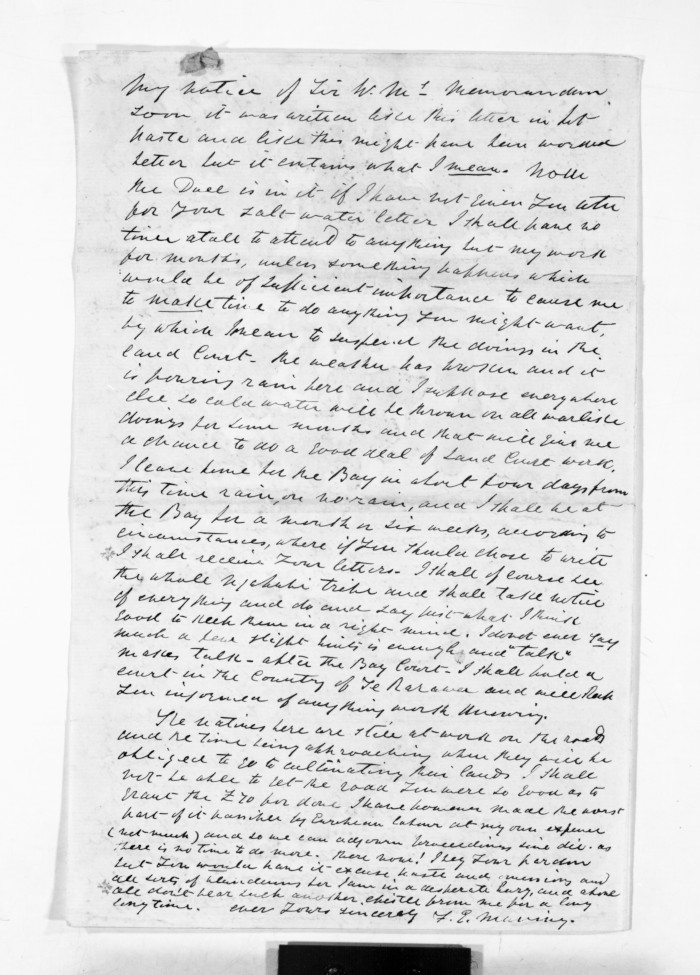 My notice of Sir W. Ms Memorandum
soon it was written like this letter in hot
haste and like this might have been worded
better but it contains what I mean. Now
the Duce is in it if I have not given You
for Your salt water letter I shall have no
time atall to attend to anything but my work
for months, unless something happens which
would be of sufficient importance to cause me
to make time to do anything You might want,
by which I mean to suspend the doings in the
Land Court - the weather has broken and it
is pouring rain here and I suppose everywhere
else so cold water will be thrown on all warlike
doings for some months and that will give me
a chance to do a good deal of Land Court work,
I leave home for the Bay in about four days from
this time rain, or no rain, and I shall be at
the Bay for a month or six weeks, according to
circumstances, where if You should chose to write
I shall receive Your letters. I shall of course see
the whole Ngapuhi tribe and shall take notice
of everything and do and say just what I think
good to keep them in a right mind. I do not ever say
much a few slight hints is enough and "talk"
makes talk - after the Bay Court - I shall hold a
court in the Country of Te Rarawa and will keep
You informed of anything worth knowing.
The natives here are still at work on the road
and the time being approaching when they will be
obliged to go to cultivating their lands I shall
not be able to get the road You were so good as to
grant the £70 for done I have however made the worst
part of it passable by European labour at my own expense
(not much) and so we can adjourn proceedings sine die. as
there is no time to do more. there now! I beg Your pardon
but You would have it excuse haste and omissions and
all sorts of blunders for I am in a desperate hurry, and above
all don't fear such another epistle from me for a long
long time. ever Yours sincerely F. E. Maning.